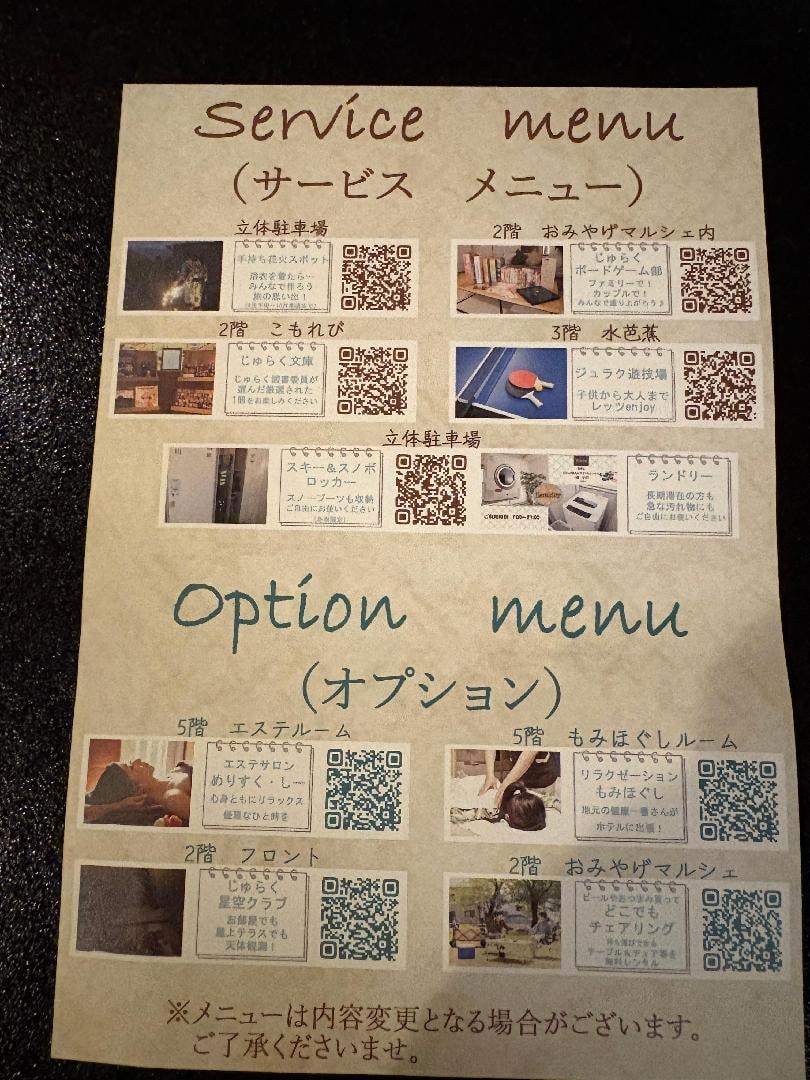 Service menu
（サービス メニュー）
立体駐車場
手持ち花火スポット
浴衣を着たら…
みんなで作ろう
旅の思い出！
2階 おみやげマルシェ内
じゅらく
ボードゲーム部
ファミリーで！
カップルで！
みんなで盛り上がろう♪
2階 こもれび
じゅらく文庫
じゅらく図書委員が
選んだ厳選された
1冊をお楽しみください
3階 水芭蕉
ジュラク遊技場
子供から大人まで
レッツenjoy
立体駐車場
スキー＆スノボ
ロッカー
スノーブーツも収納
ご自由にお使いください
(冬季限定)
Laundry
ランドリー
長期滞在の方も
急な汚れ物にも
ご自由にお使いください
Option menu
（オプション）
5階 エステルーム
エステサロン
めりすく・しー
心身ともにリラックス
優雅なひと時を
5階 もみほぐしルーム
リラクゼーション
もみほぐし
地元の健康一番さんが
ホテルに出張！
2階 フロント
じゅらく
星空クラブ
お部屋でも
屋上テラスでも
天体観測！
2階 おみやげマルシェ
ビールやおつまみ買って
どこでも
チェアリング
持ち運びできる
テーブル＆チェア等を
無料レンタル
※メニューは内容変更となる場合がございます。
ご了承くださいませ。